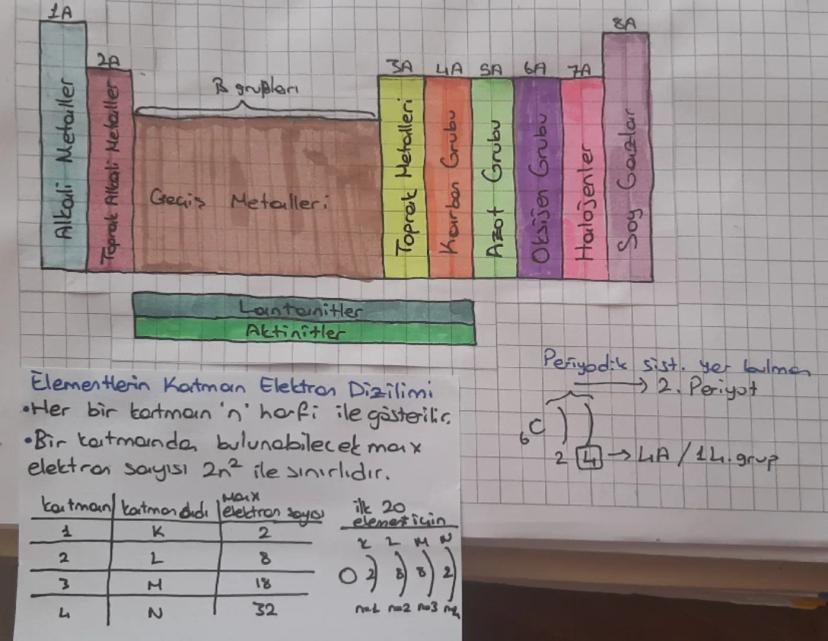 1A
2A
B grupları
3A
4A
5A
6A
7A
8A
Alkali Metaller
Toprak Alkali Metaller
Geçiş Metalleri
Toprak Metalleri
Karbon Grubu
Azot Grubu
Oksijen Grubu
Halojenler
Soy Gazlar
Lantanitler
Aktinitler
Elementlerin Katman Elektron Dizilimi
•Her bir katman 'n' harfi ile gösterilir.
•Bir katmanda bulunabilecek max
elektron sayısı 2n² ile sınırlıdır.
katman katman adı max
elektron sayısı
1 K 2
2 L 8
3 M 18
4 N 32
ilk 20
element için
K L M N
2) 8) 8) 2)
n=1 n=2 n=3 n=4
Periyodik sist. yer bulma
→ 2. Periyot
₆C ) )
2 4 → 4A / 14. grup